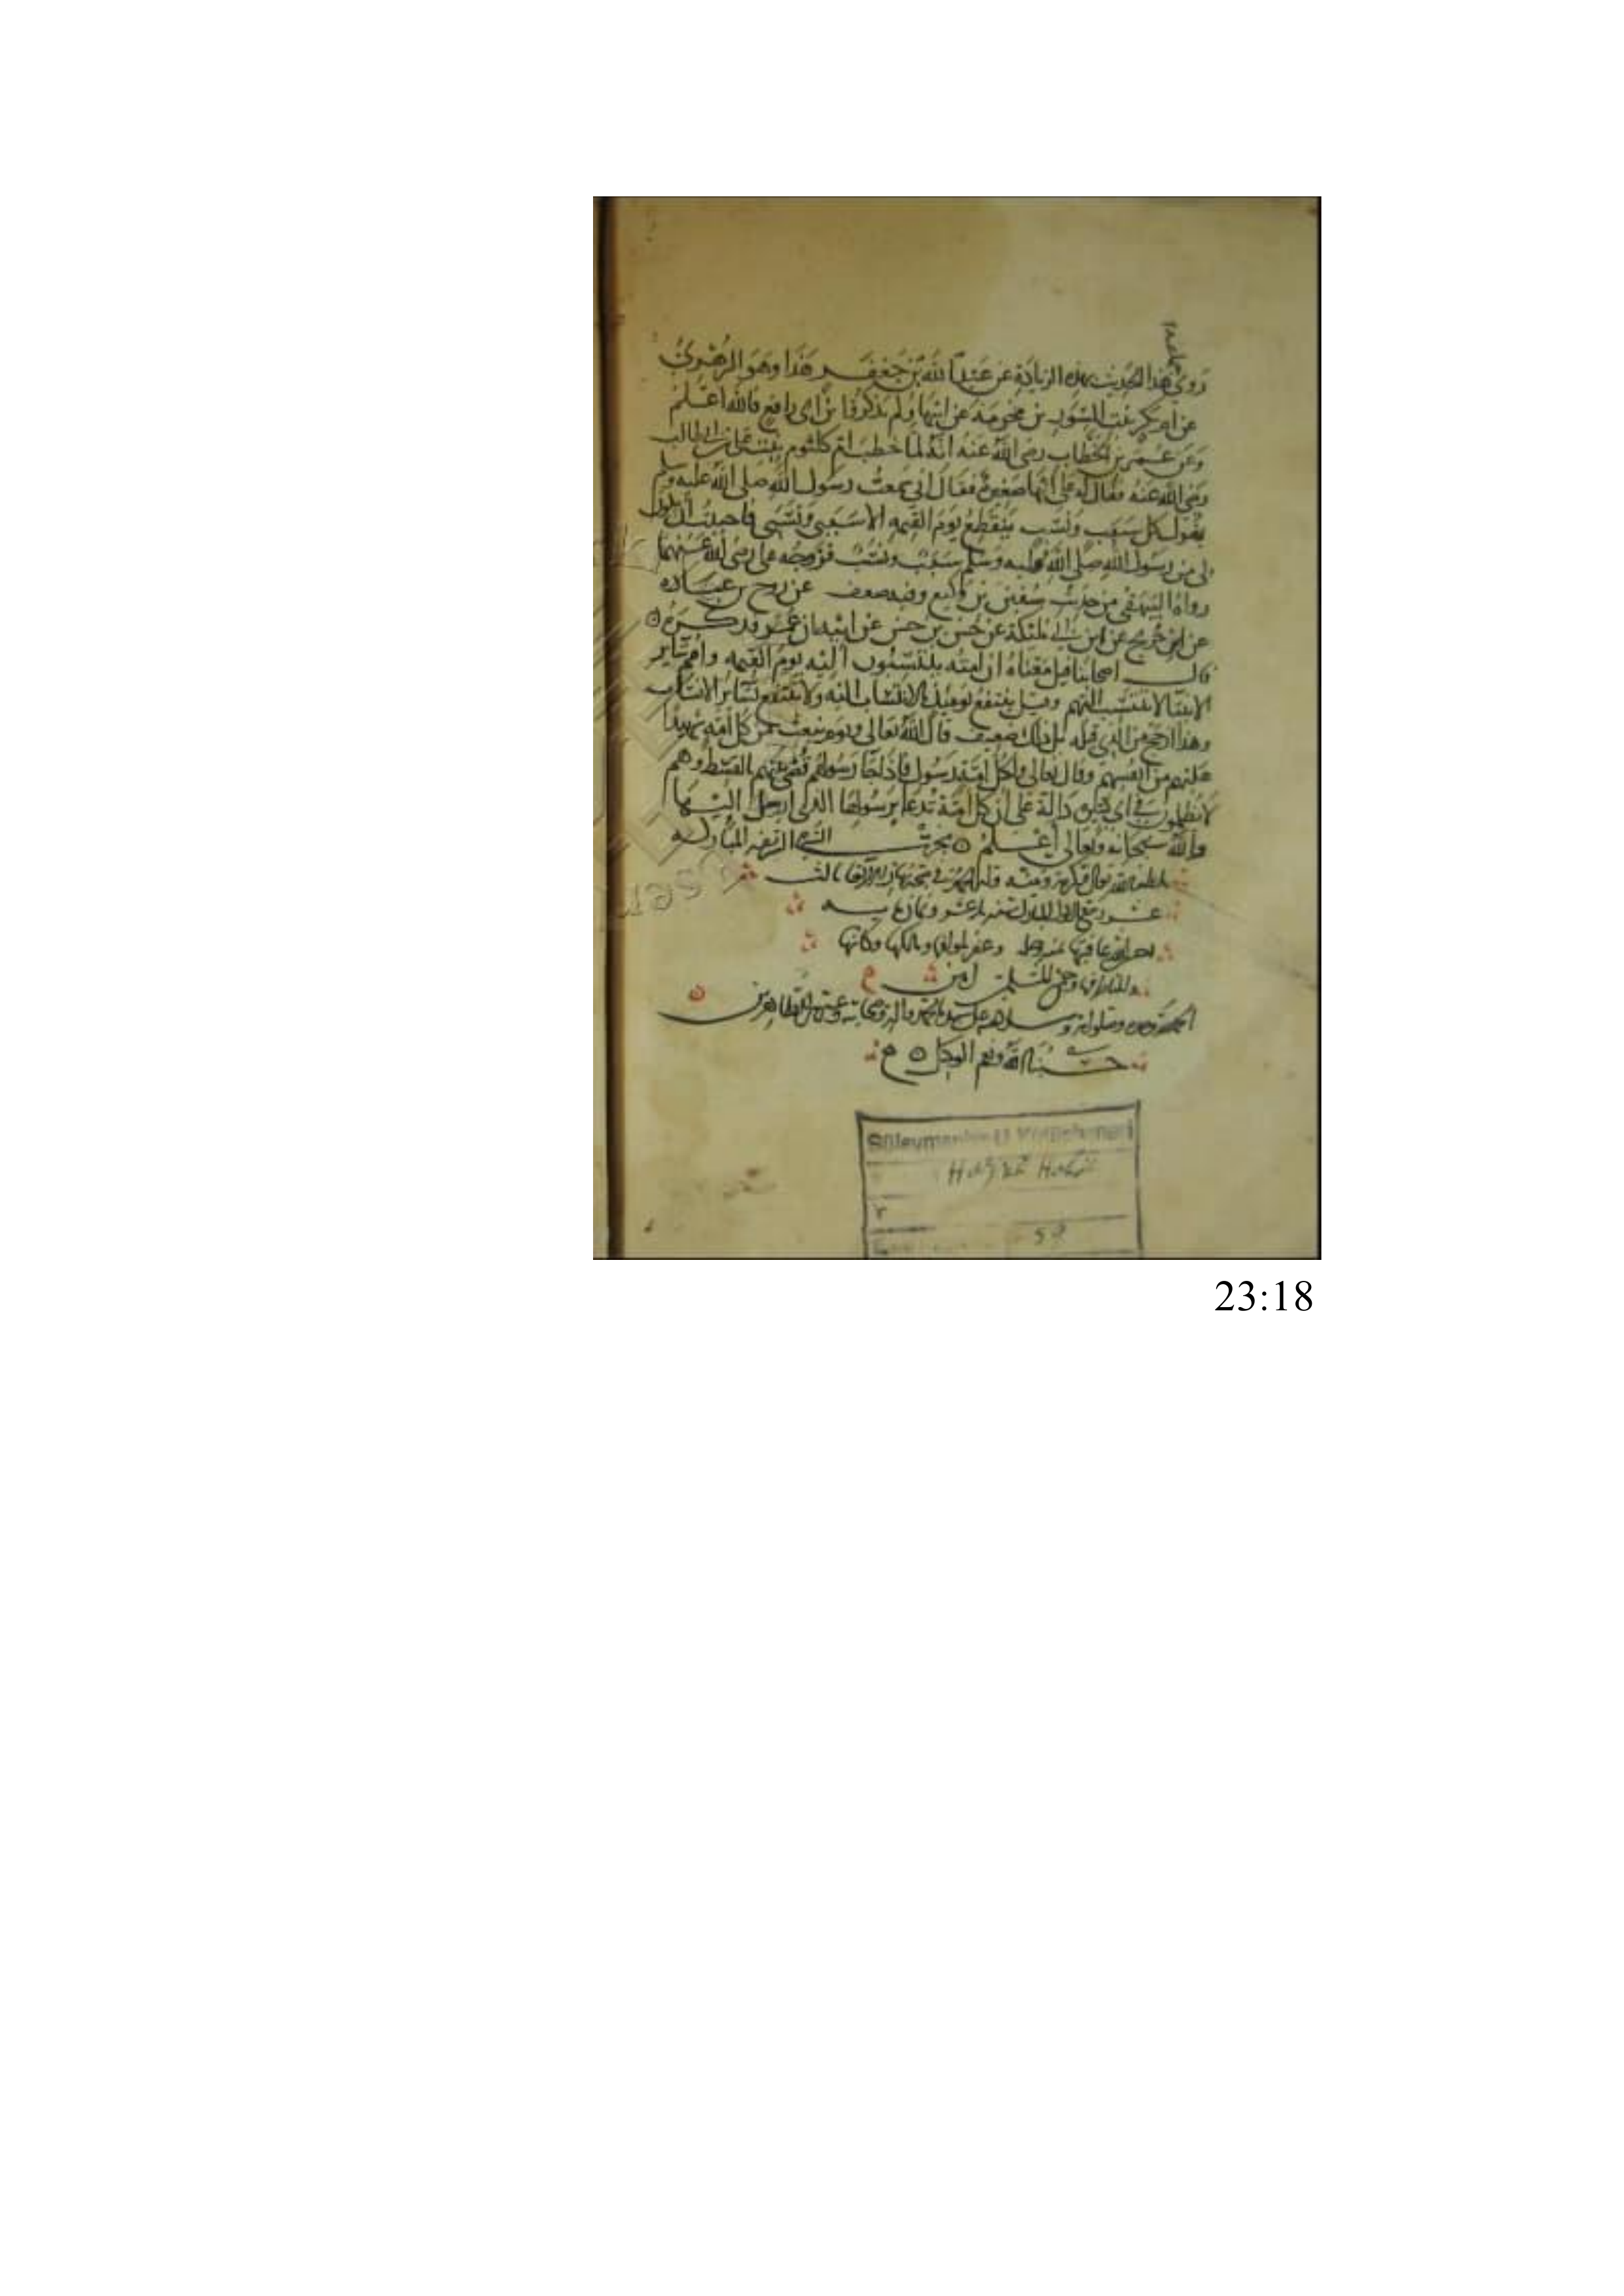 روى هذا الحديث بهذه الزيادة عن عبد الله بن جعفر هذا وهو الزهري
عن ام بكر بنت المسور بن مخرمة عن ابيها ولم يذكر ابن ابي رافع فالله اعلم
وعن عمر بن الخطاب رضي الله عنه انه لما خطب ام كلثوم بنت علي بن ابي طالب
رضي الله عنه فقال له علي انها صغيرة فقال اني سمعت رسول الله صلى الله عليه وسلم
يقول كل سبب ونسب ينقطع يوم القيمه الا سببي ونسبي فاحببت ان يكون
لي من رسول الله صلى الله عليه وسلم سبب ونسب فزوجه علي رضي الله عنهما
رواه البيهقي من حديث سفين بن وكيع وفيه ضعف عن روح بن عباده
عن ابن جريج عن ابن ابي مليكة عن حسن بن حسن عن ابيه ان عمر فذكره
قال اصحابنا قيل معناه ان امته ينتسبون اليه يوم القيمه وامم ساير
الانبيا لا تنتسب اليهم وقيل ينتفع يومئذ بالانتساب اليه ولا ينتفع بسائر الانساب
وهذا ارجح من الذي قبله بل ذلك ضعيف قال الله تعالى ويوم نبعث من كل امة شهيدا
عليهم من انفسهم وقال تعالى ولكل امة رسول فاذا جا رسولهم قضي بينهم بالقسط وهم
لا يظلمون في اي كثيرة دالة على ان كل امة تدعا برسولها الذي ارسل اليها
والله سبحانه وتعالى اعلم نجزت المباركه
وعفر لمؤلفها ومالكها وكاتبها
وجميع المسلمين امين
الحمد لله وحده وصلواته وسلامه على سيدنا محمد واله وصحابته وعترته الطاهرين
حسبنا الله ونعم الوكيل
Süleymaniye U Kütüphanesi
59
23:18